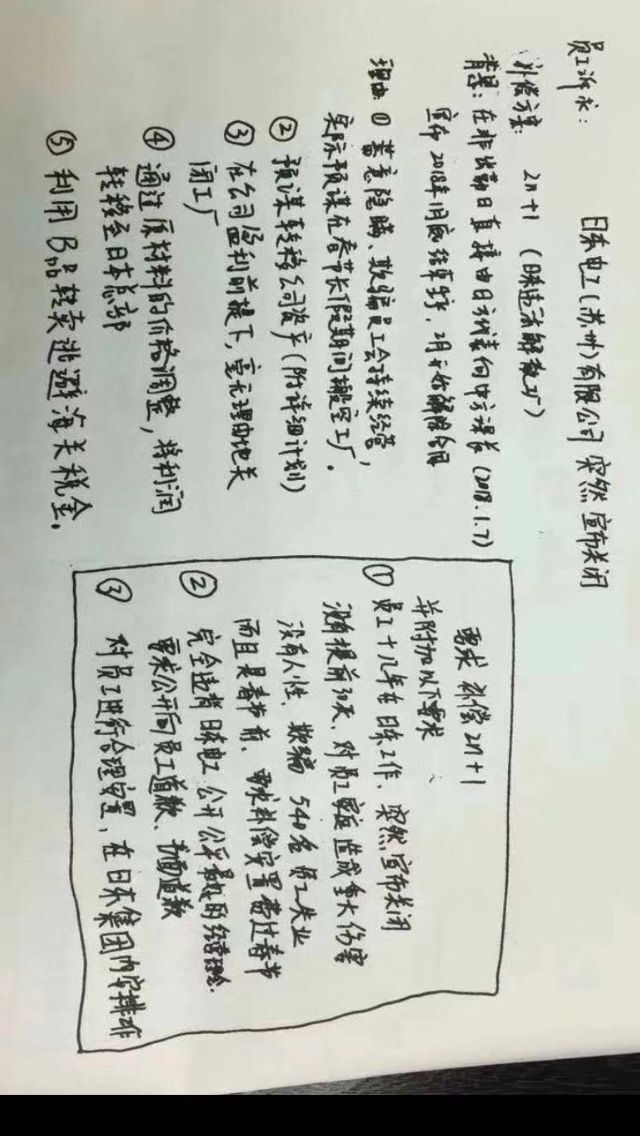 员工诉求：
日本电工(苏州)有限公司 突然宣布关闭
补偿方案： 2n+1 (日东违法解散工厂)
背景：在非出勤日直接由日方代表向中方课长 (2018.1.7)
宣布2018年1月底结束生产，2月开始解除合同
理由：① 恶意隐瞒、欺骗员工会持续经营，
实际预谋在春节长假期间搬空工厂。
② 预谋转移公司资产(附详细计划)
③ 在公司盈利前提下，毫无理由地关
闭工厂
④ 通过原材料的价格调整，将利润
转移至日本总部
⑤ 利用B品贱卖逃避海关税金。
要求 补偿 2n+1
并附加以下要求
① 员工十几年在日东工作，突然宣布关闭
没有提前30天，对员工家庭造成重大伤害
没有人性、欺骗 540名员工失业
而且是春节前，要求补偿安置费过春节
② 完全违背日东电工 公开公平的经营理念.
要求公开向员工道歉、书面道歉
③ 对员工进行合理安置，在日本集团内安排